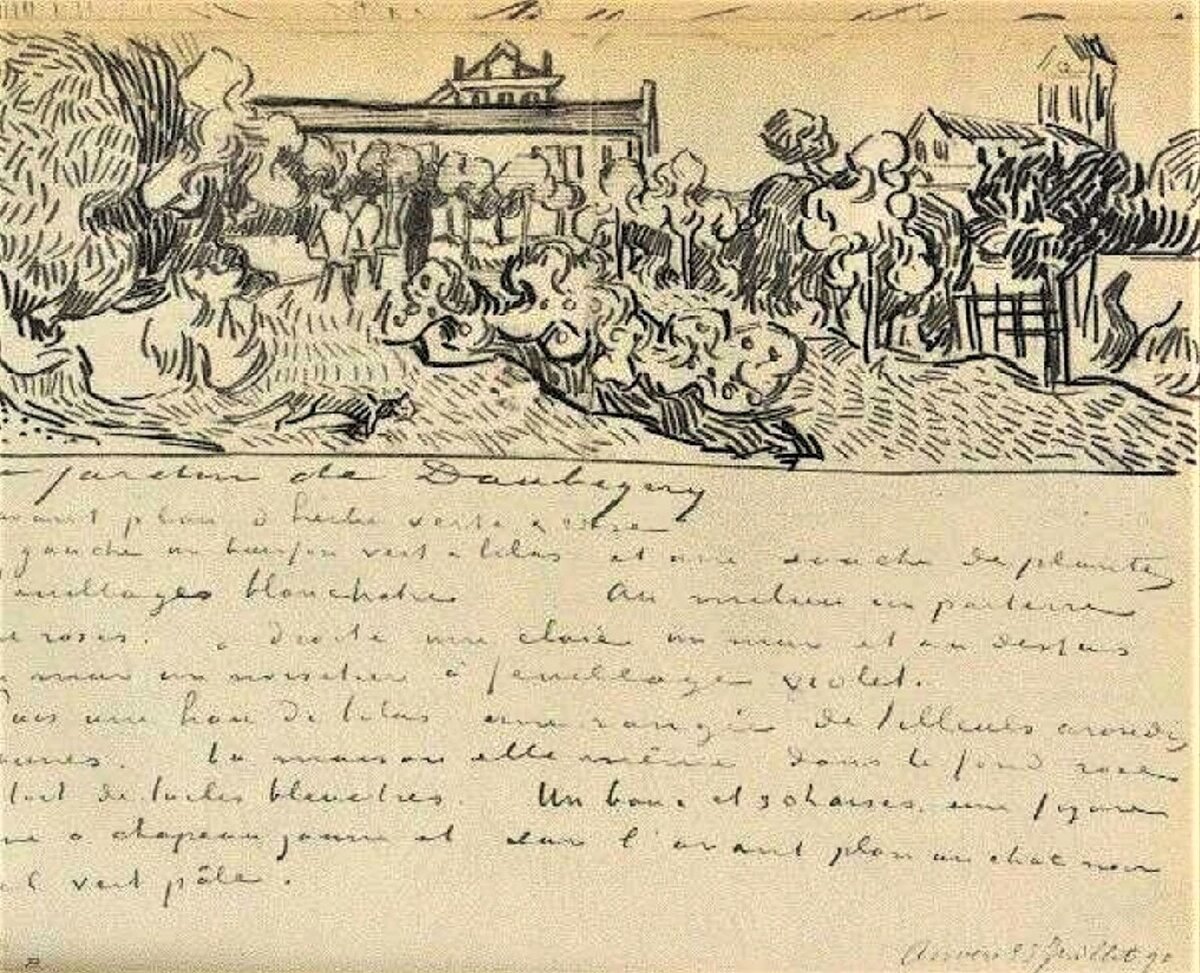 jardin de Daubigny
avant plan d'herbe verte & rose
gauche un buisson vert & lilas et une souche de plantes
feuillages blanchatres Au milieu un parterre
de roses. a droite une claie un mur et au dessus
mur un noisetier à feuillage violet.
Puis une haie de lilas une rangée de tilleuls arrondis
jaunes. La maison elle même dans le fond rose
toit de tuiles bleuatres. Un banc et 3 chaises, une figure
à chapeau jaune et sur l'avant plan un chat noir
vert pâle.
Auvers 23 Juillet 90